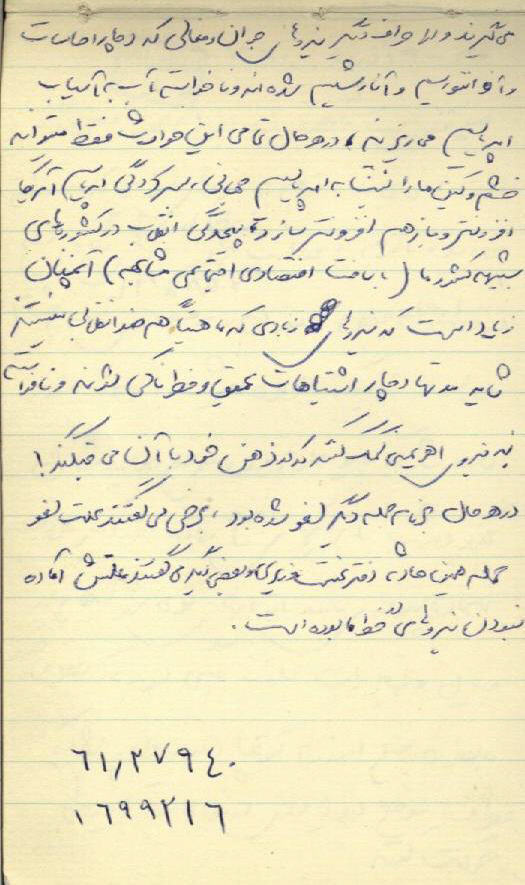 می‌گیرند و از طرف دیگر نیروهای جوان و فعالی که دچار احساسات
و آوانتوریسم و آنارشیسم شده‌اند و ناخواسته آب به آسیاب
امپریالیسم می‌ریزند، در هر حال تمامی این حوادث فقط میتواند
خشم و کین ما را نسبت به امپریالیسم جهانی، بسرکردگی امپریالیسم آمریکا
افزونتر و باز هم افزونتر سازد. پیچیدگی انقلاب در کشورهای
شبیه کشور ما (با بافت اقتصادی اجتماعی مشابه) آنچنان
زیاد است که نیروهای زیادی که ماهیتاً هم ضد انقلابی نیستند
شاید مدتها دچار اشتباهات عمیق و خطرناکی شوند و ناخواسته
به نیروی اهریمنی کمک کنند که در ذهن خود با آن می‌جنگند!
در هر حال برنامه حمله دیگر لغو شده بود، برخی می‌گفتند علت لغو
حمله همین حادثه دفتر نخست‌وزیری و بعضی دیگر می‌گفتند علتش آماده
نبودن نیروهای خط ما بوده است.
٦١٫٢٧٩٤٠
١٦٩٩٢١٦